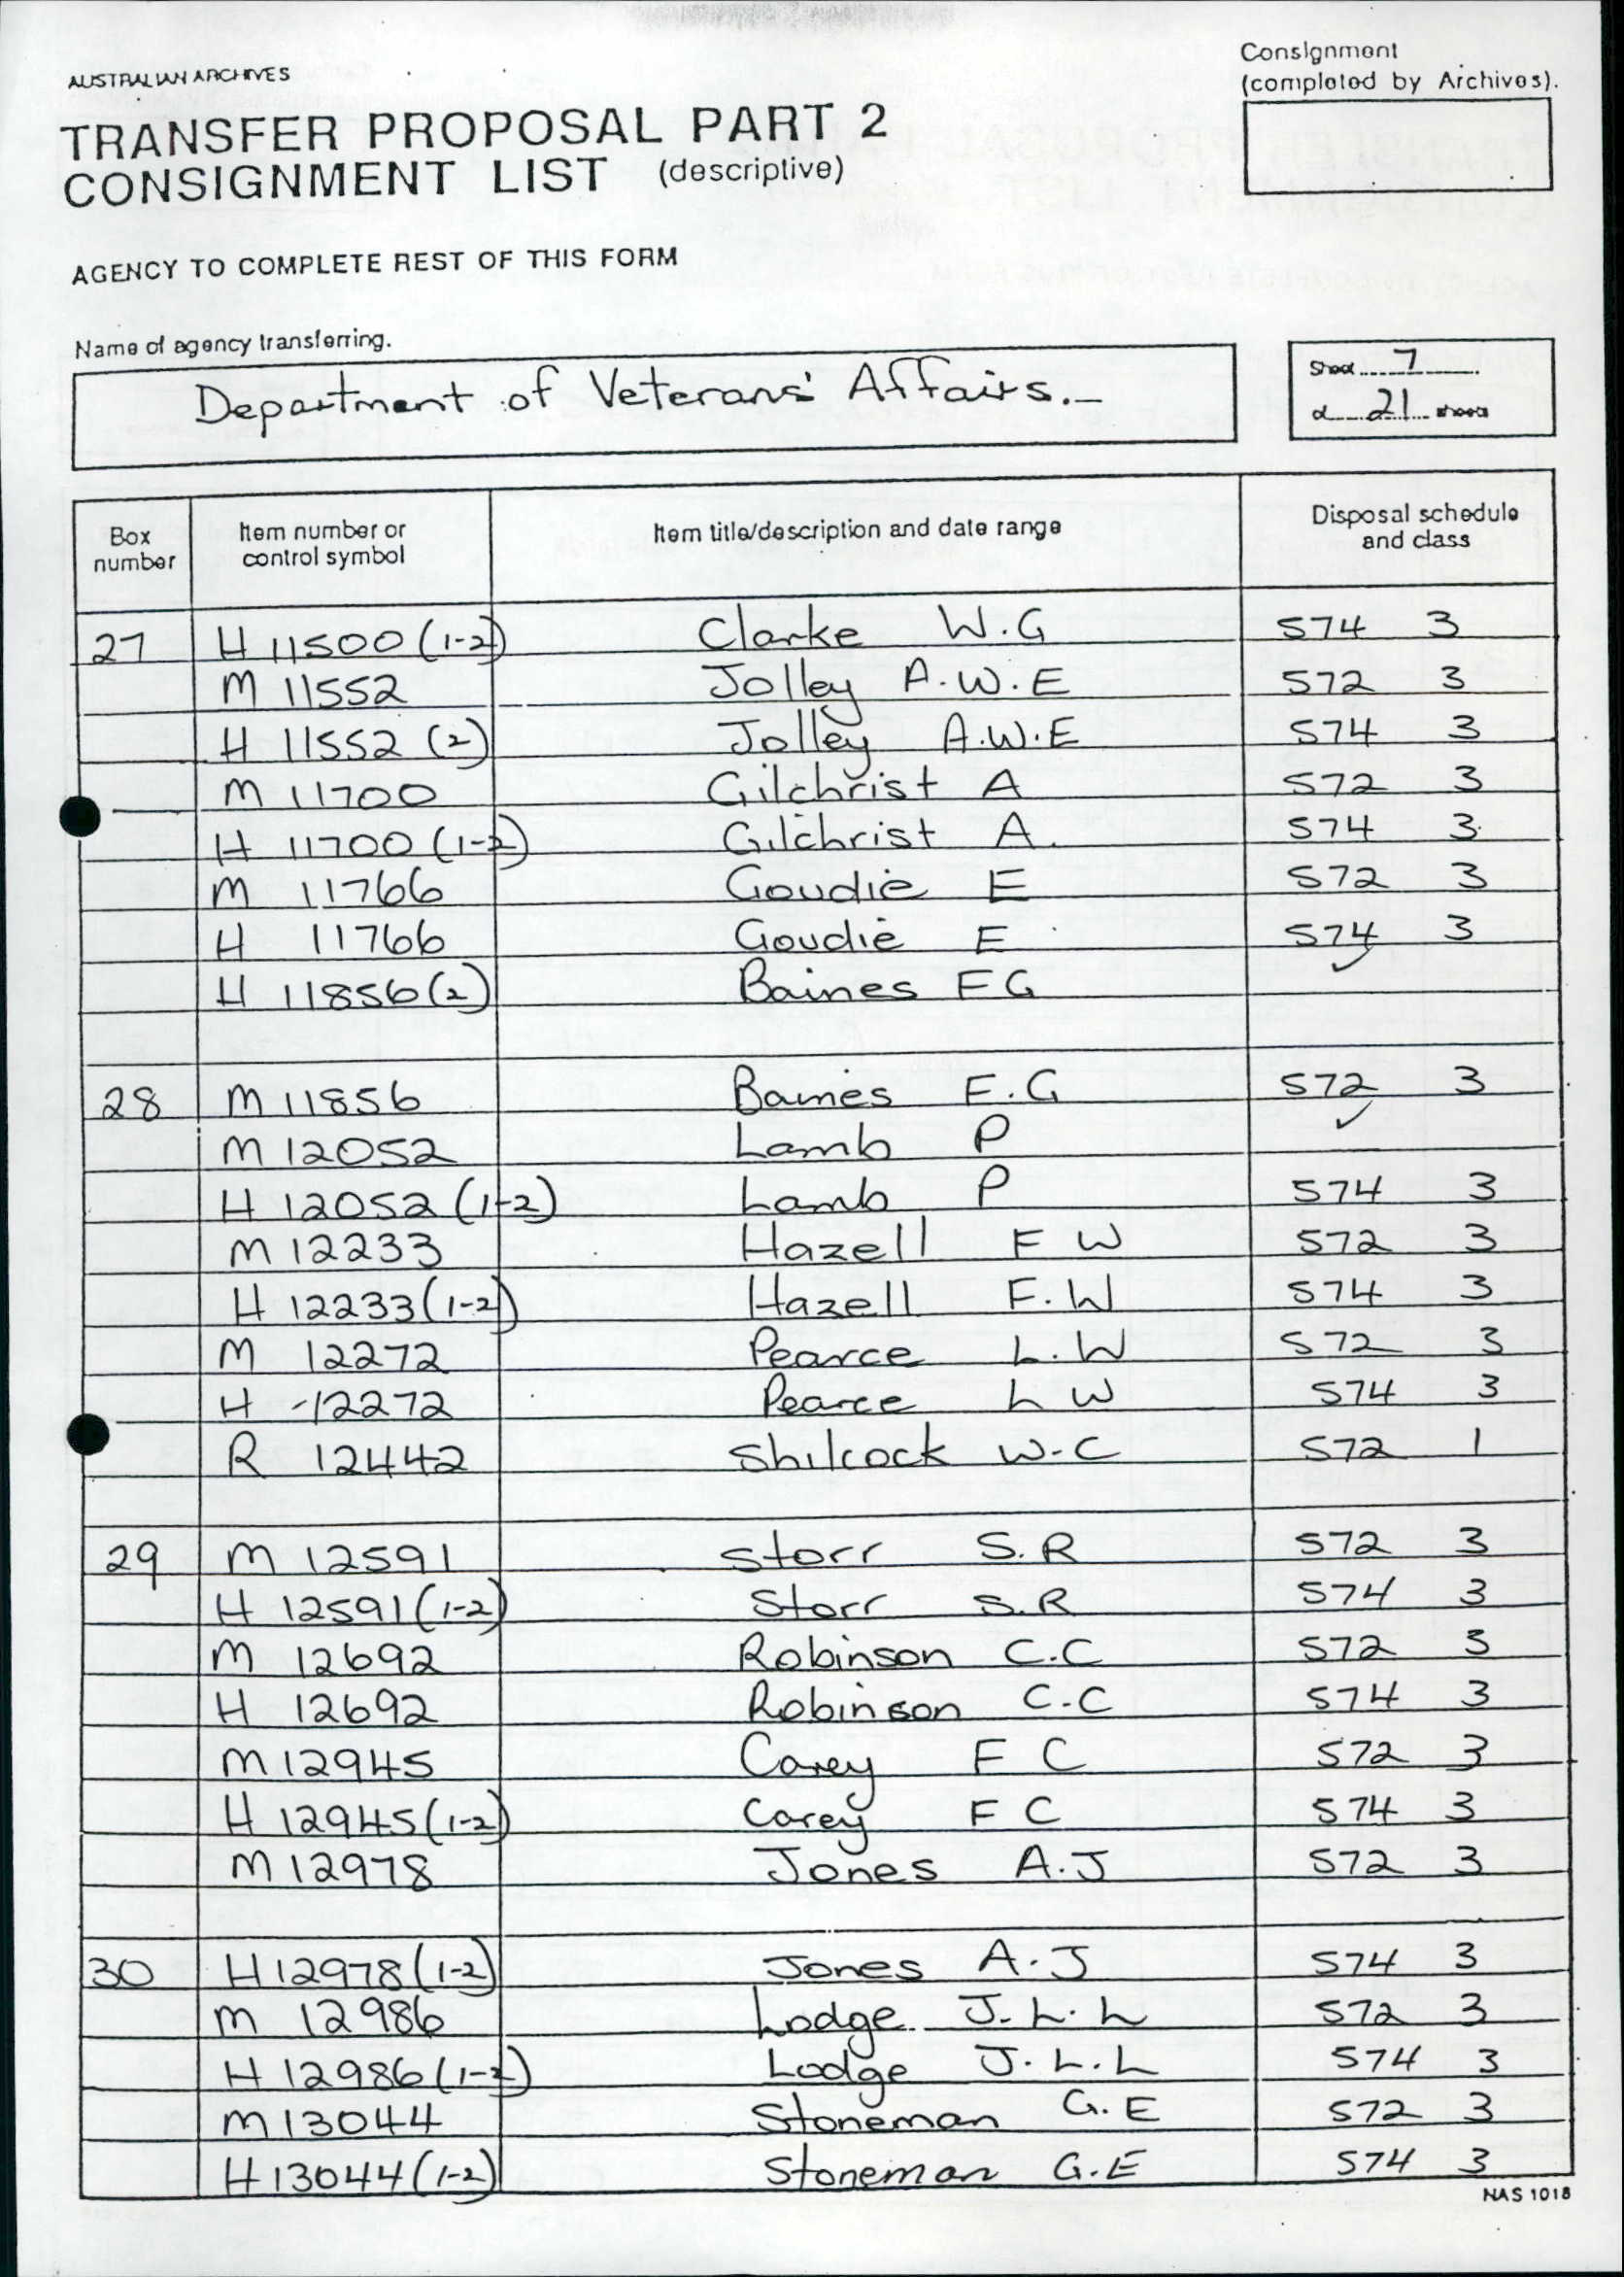 Consignment
(completed by Archives).
AUSTRALIAN ARCHIVES
TRANSFER PROPOSAL PART 2
CONSIGNMENT LIST (descriptive)
AGENCY TO COMPLETE REST OF THIS FORM
Name of agency transferring.
Department of Veterans' Affairs.-
Sheet 7
of 21 sheets
Box number Item number or control symbol Item title/description and date range Disposal schedule and class
27 H 11500 (1-2) Clarke W.G 574 3
M 11552 Jolley A.W.E 572 3
H 11552 (2) Jolley A.W.E 574 3
M 11700 Gilchrist A 572 3
H 11700 (1-2) Gilchrist A. 574 3
M 11766 Goudie E 572 3
H 11766 Goudie E 574 3
H 11856 (2) Baines F G ✓
28 M 11856 Baines F.G 572 3
M 12052 Lamb P ✓
H 12052 (1-2) Lamb P 574 3
M 12233 Hazell F W 572 3
H 12233 (1-2) Hazell F.W 574 3
M 12272 Pearce L.W 572 3
H -12272 Pearce L W 574 3
R 12442 Shilcock W-C 572 1
29 M 12591 Storr S.R 572 3
H 12591 (1-2) Storr S.R 574 3
M 12692 Robinson C.C 572 3
H 12692 Robinson C.C 574 3
M 12945 Carey F C 572 3
H 12945 (1-2) Carey F C 574 3
M 12978 Jones A.J 572 3
30 H 12978 (1-2) Jones A.J 574 3
M 12986 Lodge J.L.L 572 3
H 12986 (1-2) Lodge J.L.L 574 3
M 13044 Stoneman G.E 572 3
H 13044 (1-2) Stoneman G.E 574 3
NAS 1018